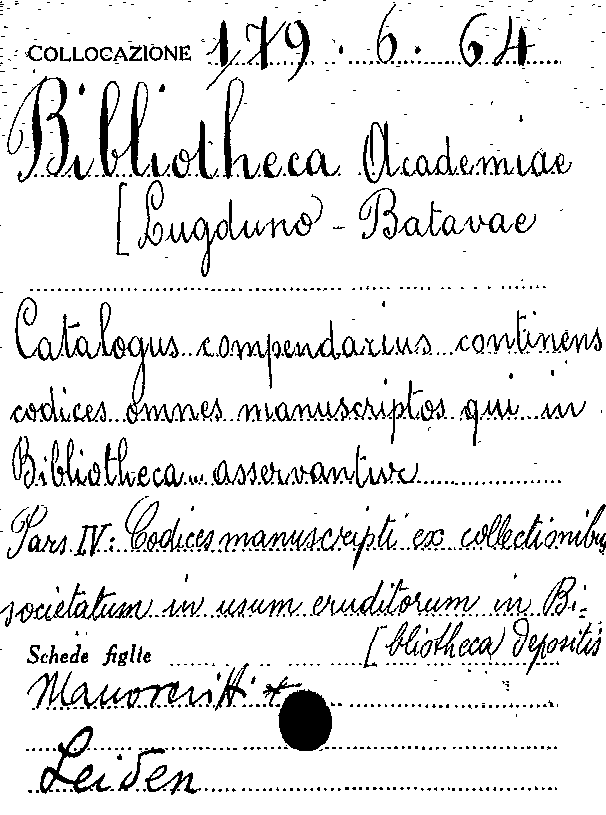 COLLOCAZIONE 179. 6. 64
Bibliotheca Academiae
[Lugduno - Batavae
Catalogus compendarius continens
codices omnes manuscriptos qui in
Bibliotheca... asservantur
Pars IV: Codices manuscripti ex collectionibus
societatum in usum eruditorum in Bi-
[bliotheca depositis
Schede figlie
Manoscritti +
Leiden